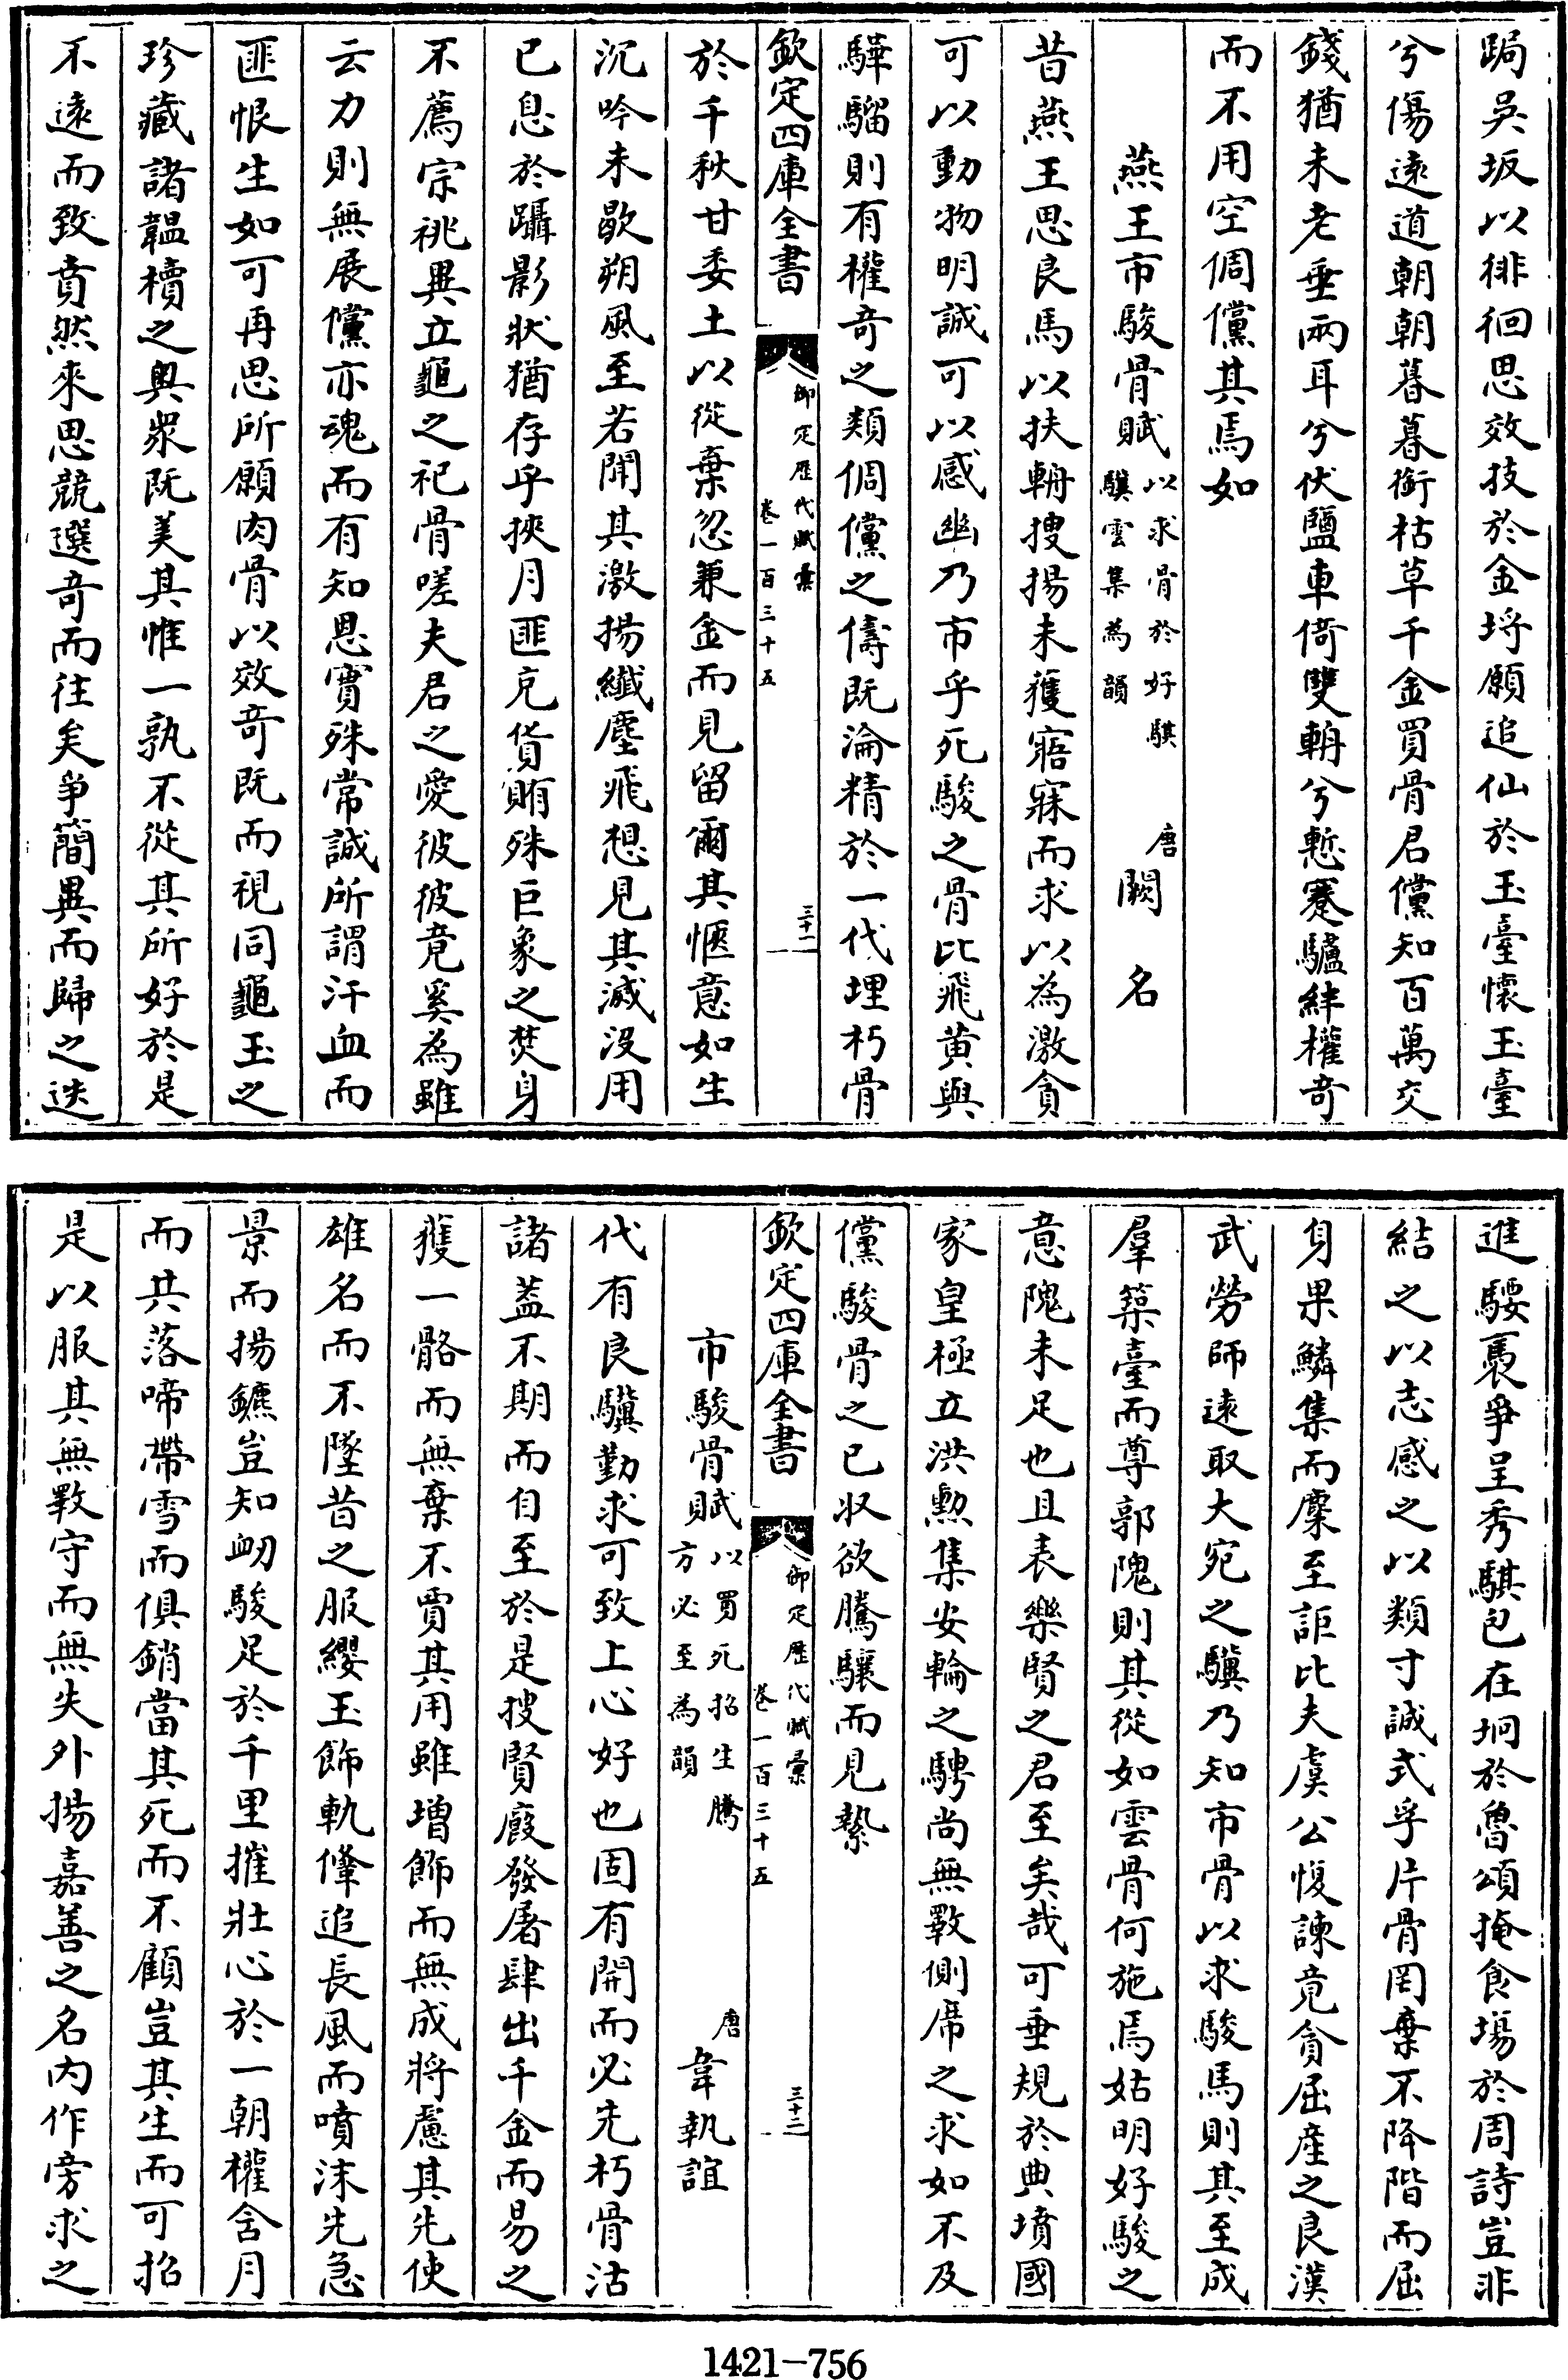 跼吳坂以徘徊思效技於金埒願追仙於玉臺懷玉臺
兮傷遠道朝朝暮暮銜枯草千金買骨君儻知百萬交
錢猶未老垂兩耳兮伏鹽車倚雙輈兮慙蹇驢絆權奇
而不用空倜儻其焉如
燕王市駿骨賦以求骨於好騏驥雲集為韻 唐 闕名
昔燕王思良馬以扶輈搜揚未獲寤寐而求以為激貪
可以動物明誠可以感幽乃市乎死駿之骨比飛黄與
驊騮則有權奇之類倜儻之儔既淪精於一代埋朽骨
欽定四庫全書 御定歴代賦彚 卷一百三十五 三十一
於千秋甘委土以從棄忽兼金而見留爾其愜意如生
沉吟未歇朔風至若聞其激揚纎塵飛想見其滅没用
已息於躡影狀猶存乎挾月匪充貨賄殊巨象之焚身
不薦宗祧異立龜之祀骨嗟夫君之愛彼彼竟奚為雖
云力則無展儻亦魂而有知恩實殊常誠所謂汗血而
匪恨生如可再思所願肉骨以效奇既而視同龜玉之
珍藏諸韞櫝之輿衆既美其惟一孰不從其所好於是
不遠而致賁然來思競選奇而往矣爭簡異而歸之迭
進騕褭爭呈秀騏已在坰於魯頌掩食場於周詩豈非
結之以志感之以類寸誠式孚片骨罔棄不降階而屈
身果鱗集而麇至詎比夫虞公愎諫竟貪屈產之良漢
武勞師遠取大宛之驥乃知市骨以求駿馬則其至成
羣築臺而尊郭隗則其從如雲骨何施焉姑明好駿之
意隗未足也且表樂賢之君至矣哉可垂規於典墳國
家皇極立洪勲集安輪之騁尚無斁側席之求如不及
儻駿骨之已收欲騰驤而見縶
欽定四庫全書 御定歴代賦彚 卷一百三十五 三十二
市駿骨賦以買死招生騰方必至為韻 唐 韋執誼
代有良驥勤求可致上心好也固有開而必先朽骨沽
諸葢不期而自至於是搜賢廐發屠肆出千金而易之
獲一骼而無棄不賈其用雖增飾而無成將慮其先使
雄名而不墜昔之服纓玉飾軌修追長風而噴沫先急
景而揚鑣豈知衂駿足於千里摧壯心於一朝權舍月
而共落啼帶雪而俱銷當其死而不顧豈其生而可招
是以服其無斁守而無失外揚嘉善之名内作旁求之
1421-756